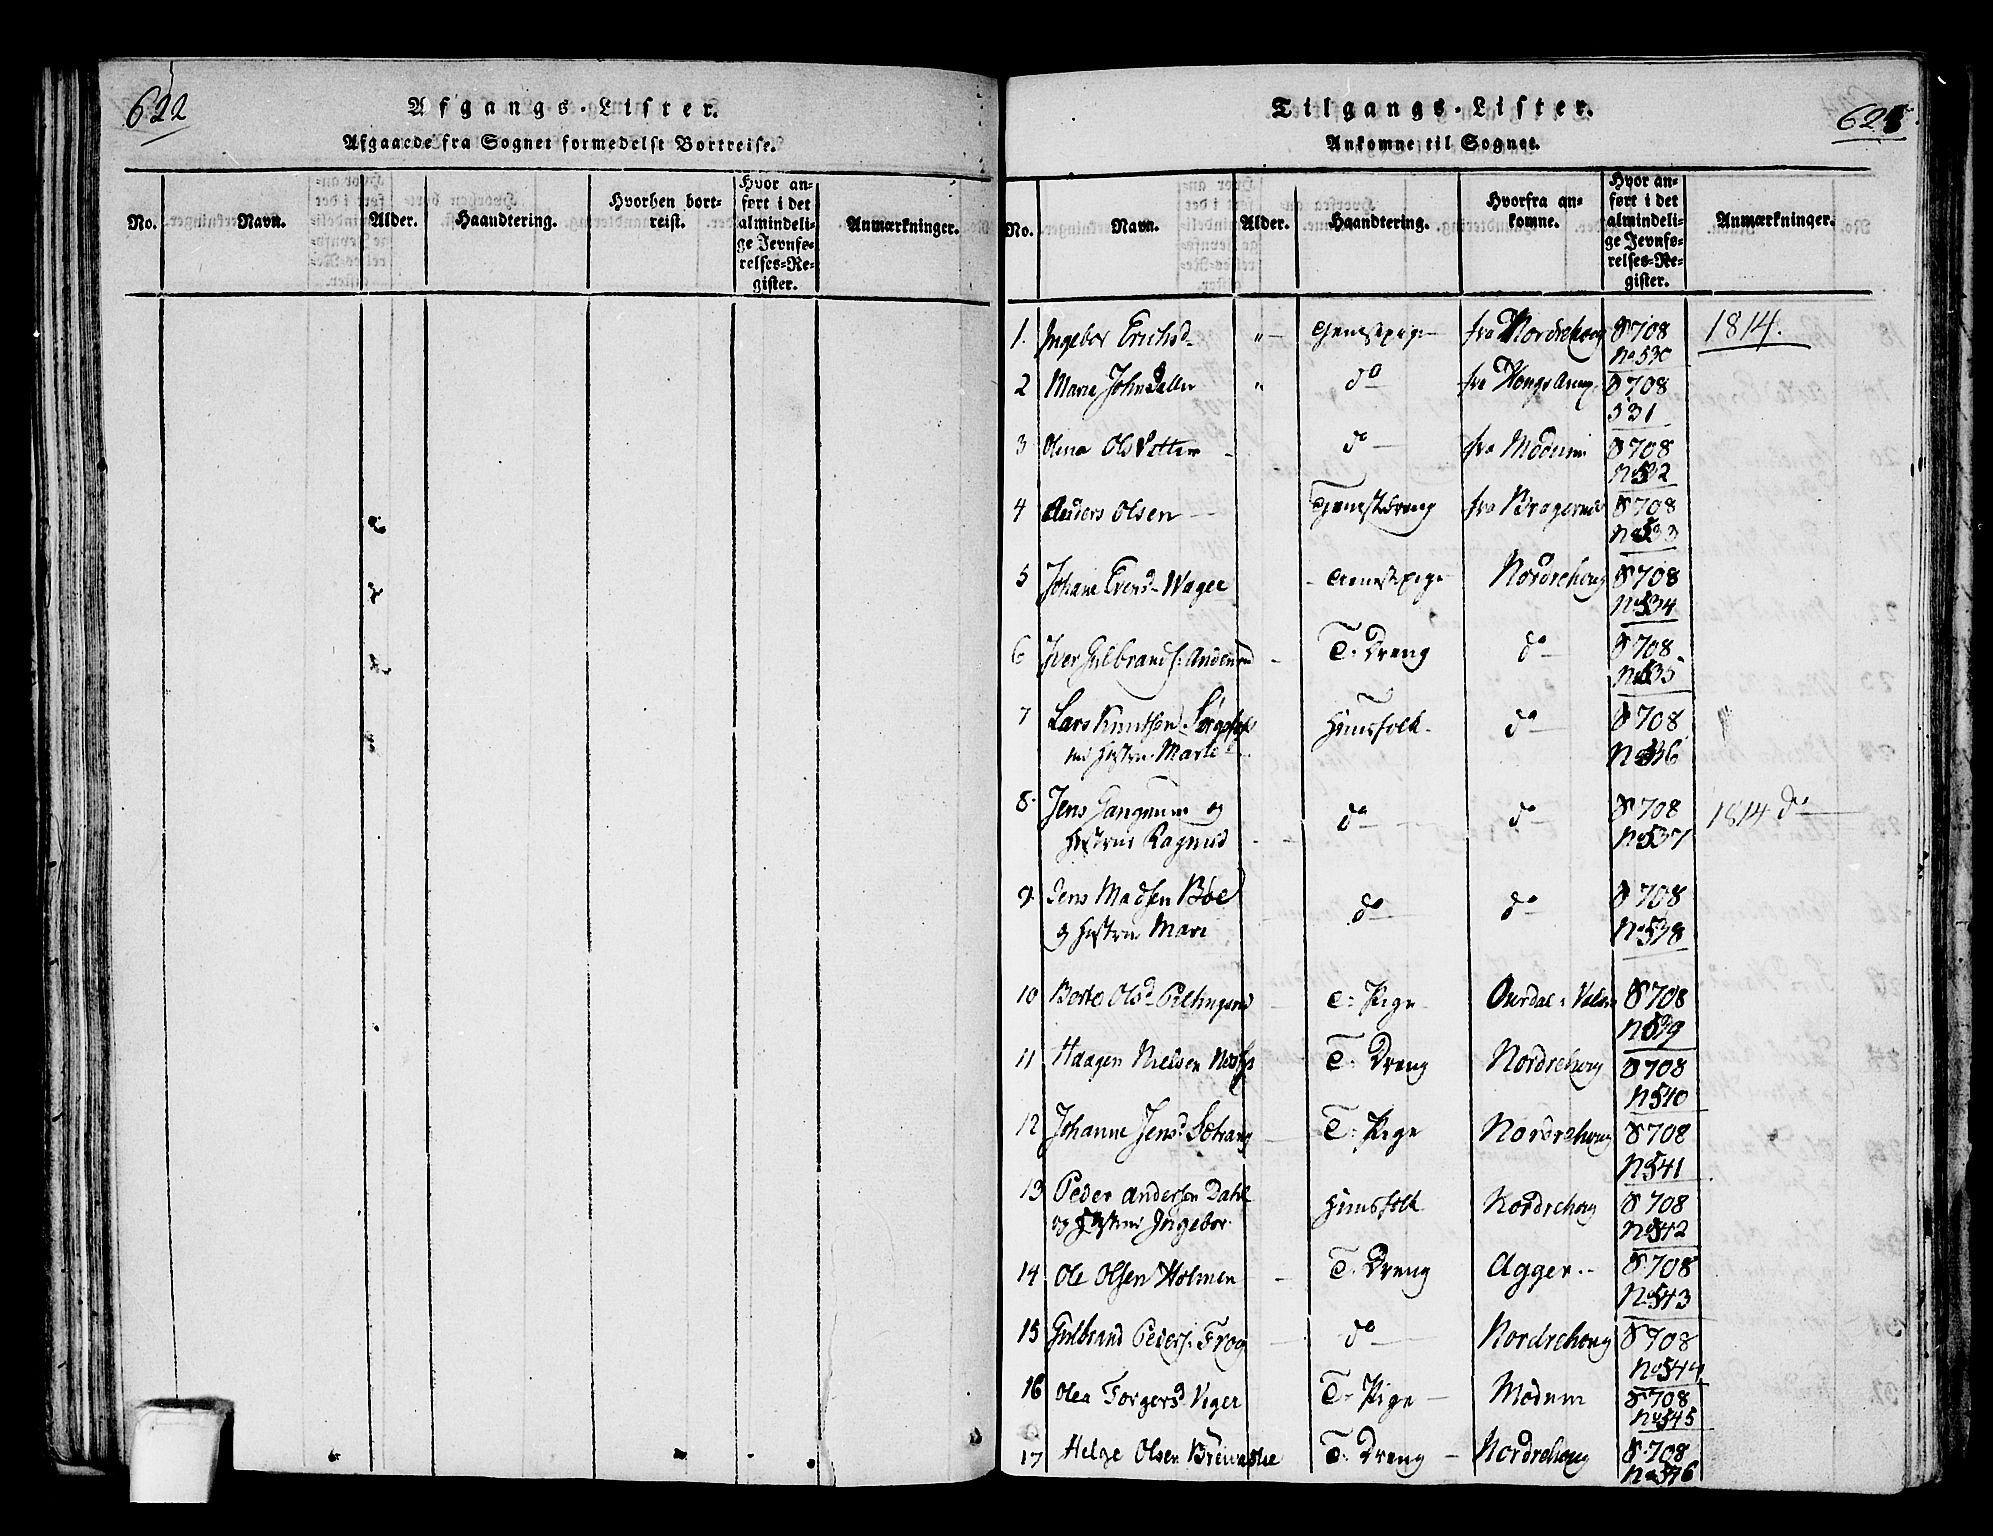 622
Afgangs-Lister.
Afgaaede fra Sognet formedelst Bortreise.
No. Navn. Alder. Haandtering. Hvorhen bortreist. Hvor anført i det almindelige Jevnførelses-Register. Anmærkninger.
Tilgangs-Lister.
Ankomne til Sognet.
No. Navn. Alder. Haandtering. Hvorfra ankomne. Hvor anført i det almindelige Jevnførelses-Register. Anmærkninger.
1. Ingebor Erichsd fra Nordrehoug S 708 1814.
No 530
2 Marie do fra S 708
531
3 Olena do fra Modum S 708
No 532
4 Anders Olsen fra Bragernes S 708
No 533
5 Johane Nordrehoug S 708
No 534
6 Iver T: Dreng do S 708
No 535
7 Lars Knutsen Huusfolk do S 708
Marte No 536
8. Jens og do do S 708 1814 do
No 537
9. Jens Madsen Bøe do do S 708
og Mari No 538
10 Olsd T: Pige S 708
No 539
11 Haagen Nielsen T: Dreng Nordrehoug S 708
No 540
12 Johanne Jensd T: Pige Nordrehoug S 708
No 541
13 Peder Andersen Dahl Huusfolk Nordrehoug S 708
og Ingebor No 542
14 Ole Olsen Holmen T. Dreng Agger S 708
No 543
15 Gulbrand Peders: Frog do Nordrehoug S 708
No 544
16 Olea Torgersd Viger T: Pige Modum S 708
No 545
17 Helge Olsen T: Dreng Nordrehoug S. 708
No 546